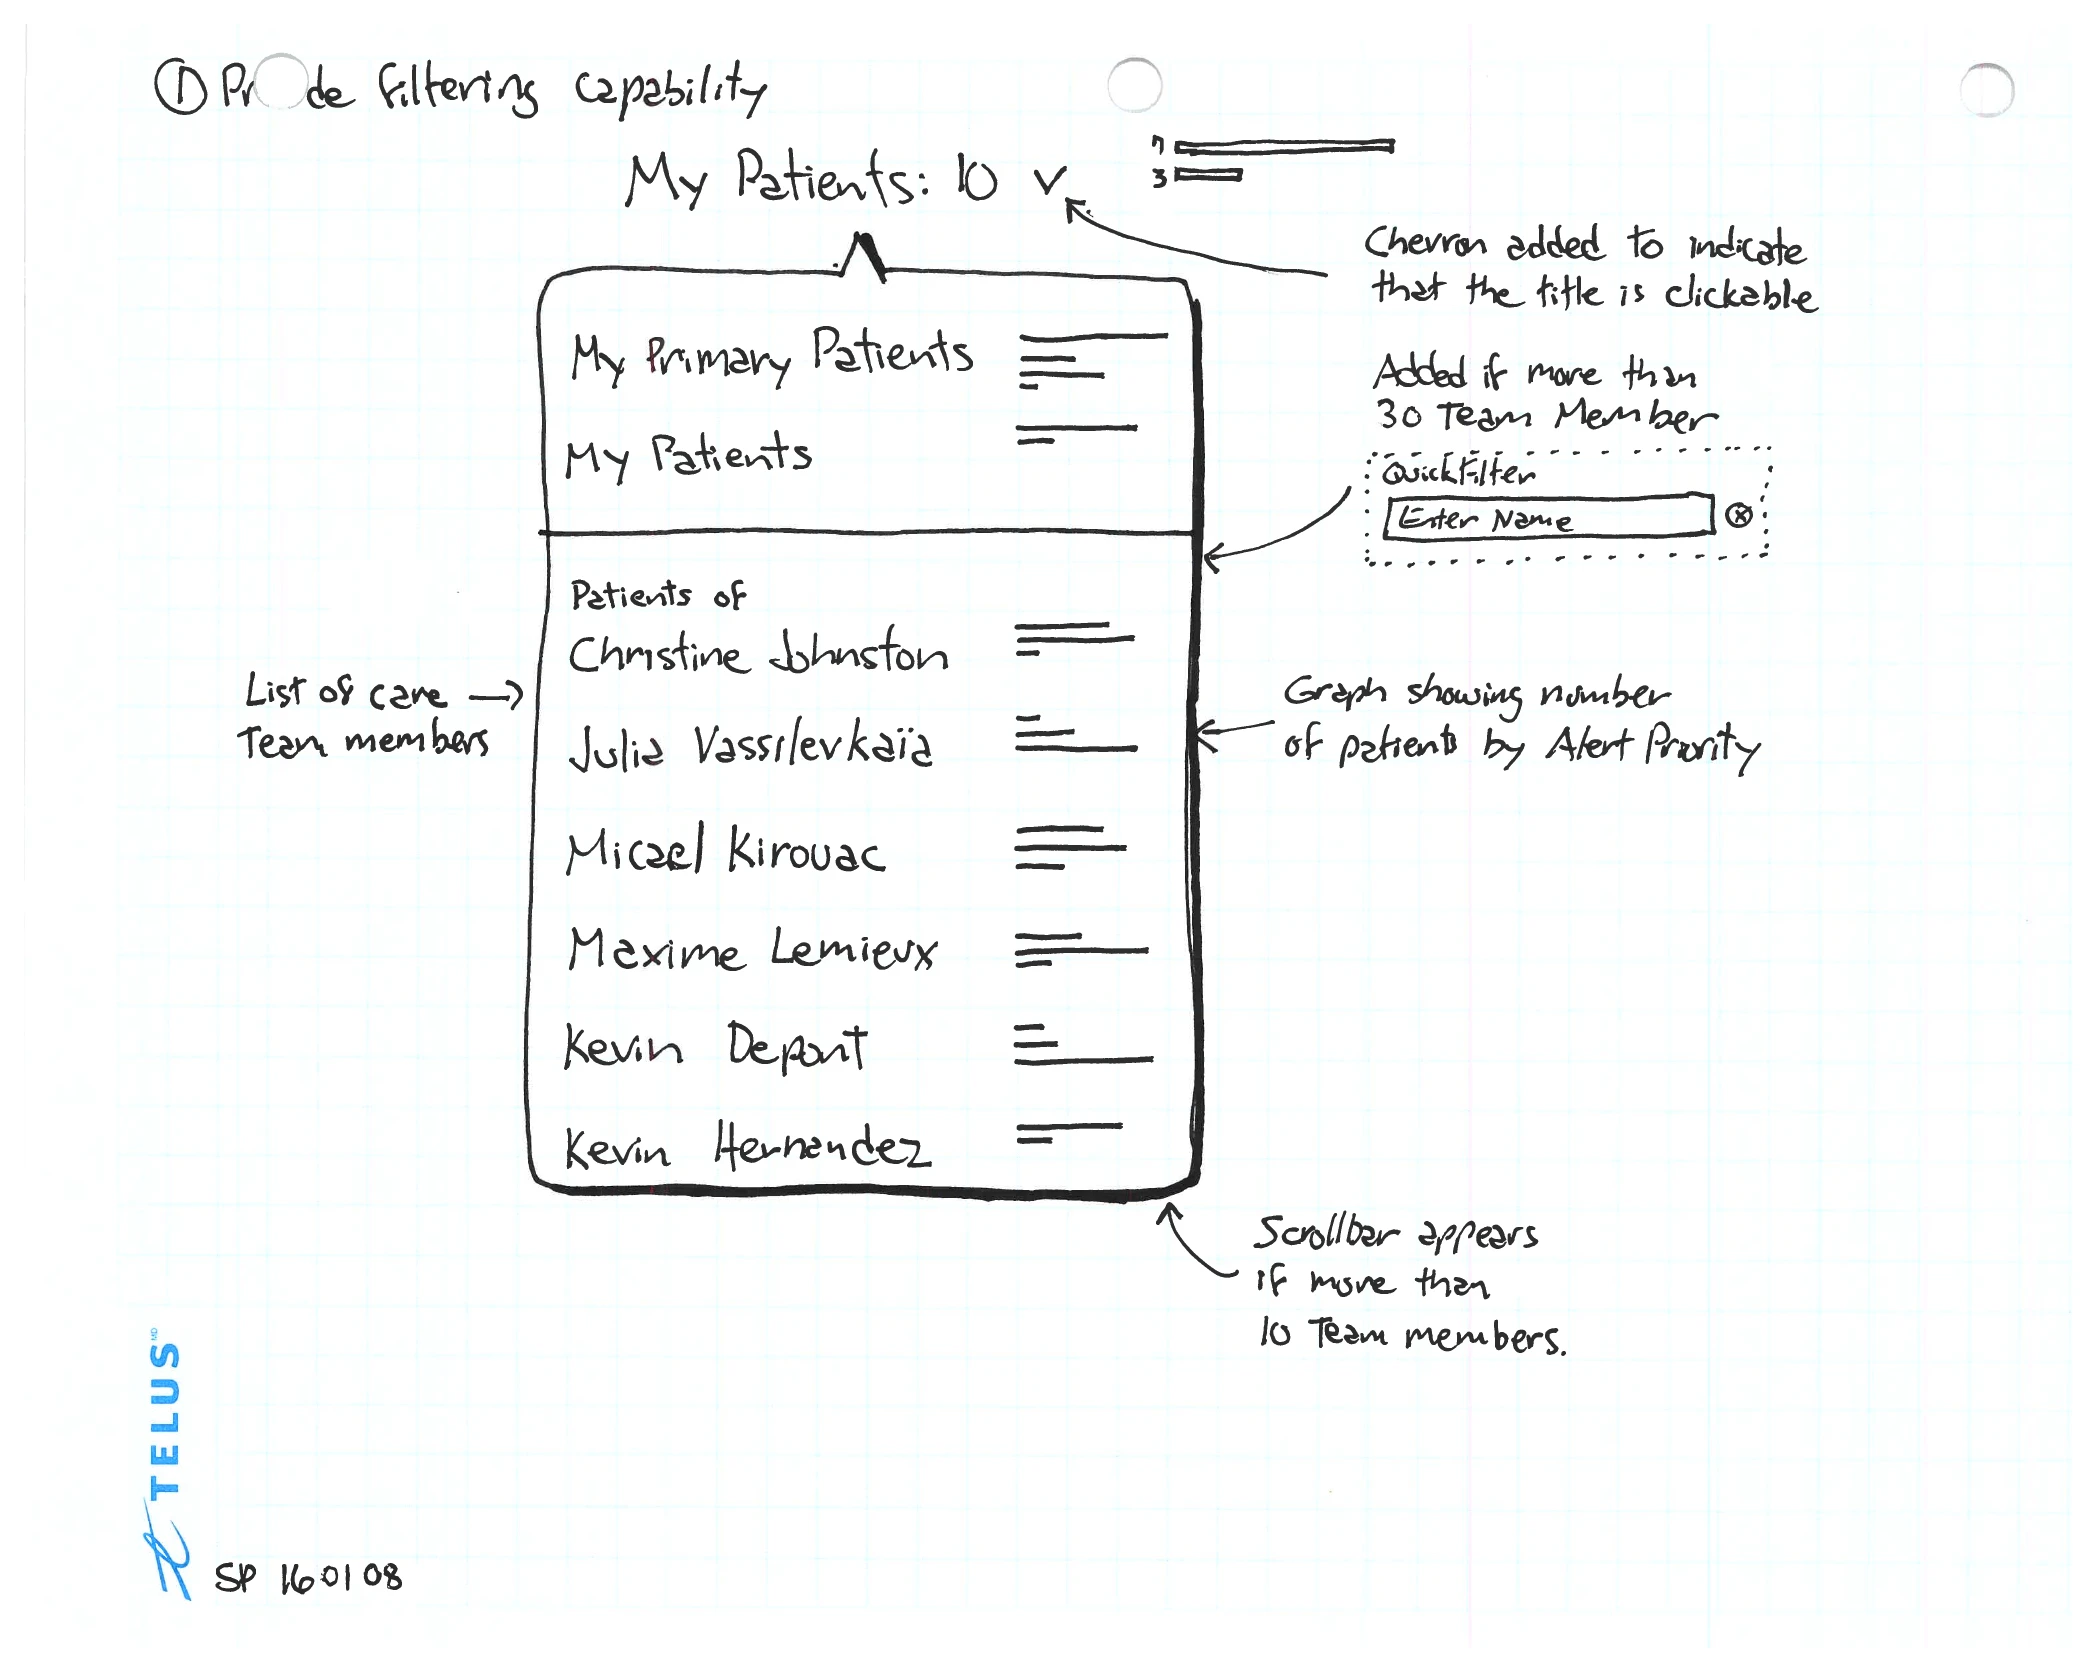 ① Pr de filtering capability
My Patients: 10 v
7
3
Chevron added to indicate
that the title is clickable
My Primary Patients
My Patients
Added if more than
30 Team Member
QuickFilter
Enter Name
Patients of
Christine Johnston
Julia Vassilevkaïa
Micael Kirouac
Maxime Lemieux
Kevin Depont
Kevin Hernandez
List of care
Team members
Graph showing number
of patients by Alert Priority
Scrollbar appears
if more than
10 Team members.
TELUS MD
SP 160108